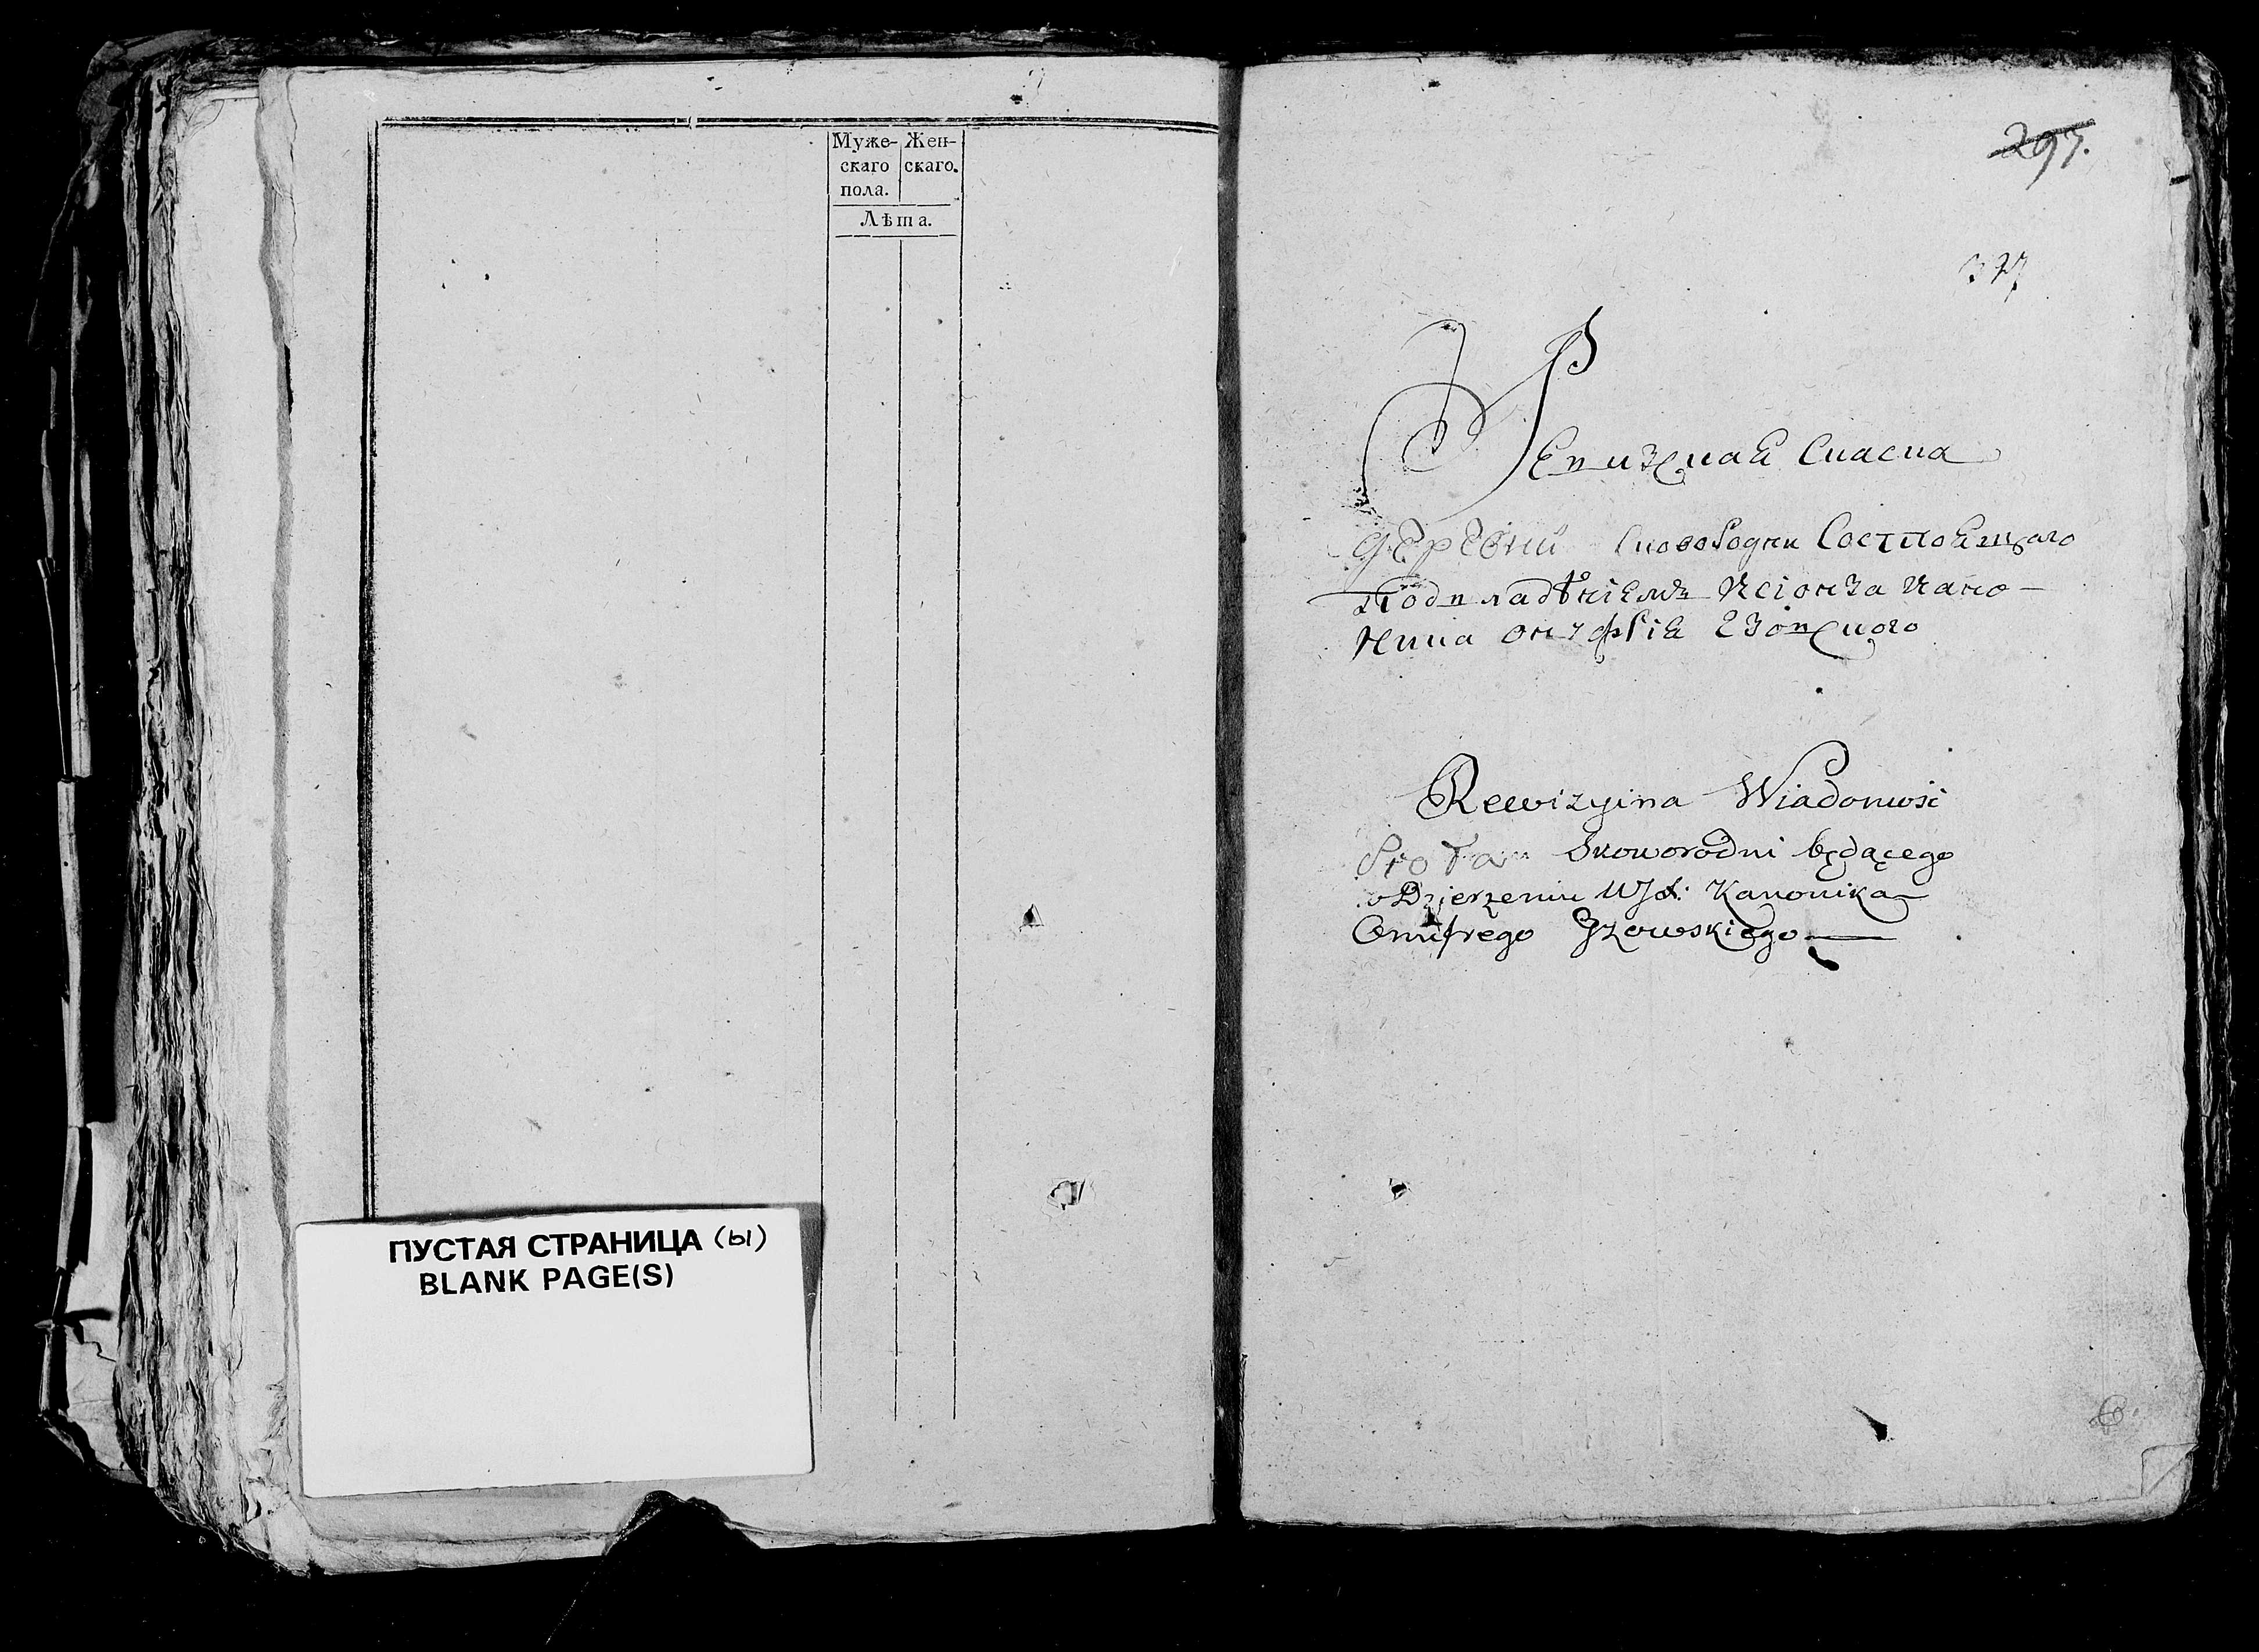 Муже-
скаго
пола.
Жен-
скаго.
Лѣта.
ПУСТАЯ СТРАНИЦА (ы)
BLANK PAGE(S)
297.
377
Ревизская Скаска
деревни Сковородки Состоящаго
подвладѣніемъ Ксіонза Кано-
ника Онуфрія Гзовскаго
Rewizyina Wiadomość
Skoworodni będącego
w Dzierzeniu WJX: Kanonika
Onufrego Gzowskiego